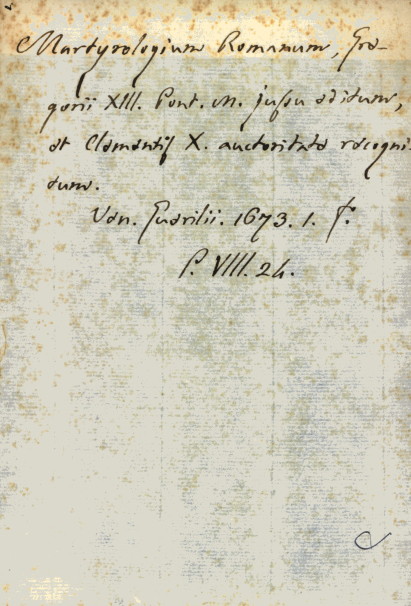 Martyrologium Romanum, Gre-
gorii XIII. Pont. M. jussu editum,
et Clementis X. auctoritate recogni
tum.
Ven. Guerilii. 1673. 1. F.
P. VIII. 24.